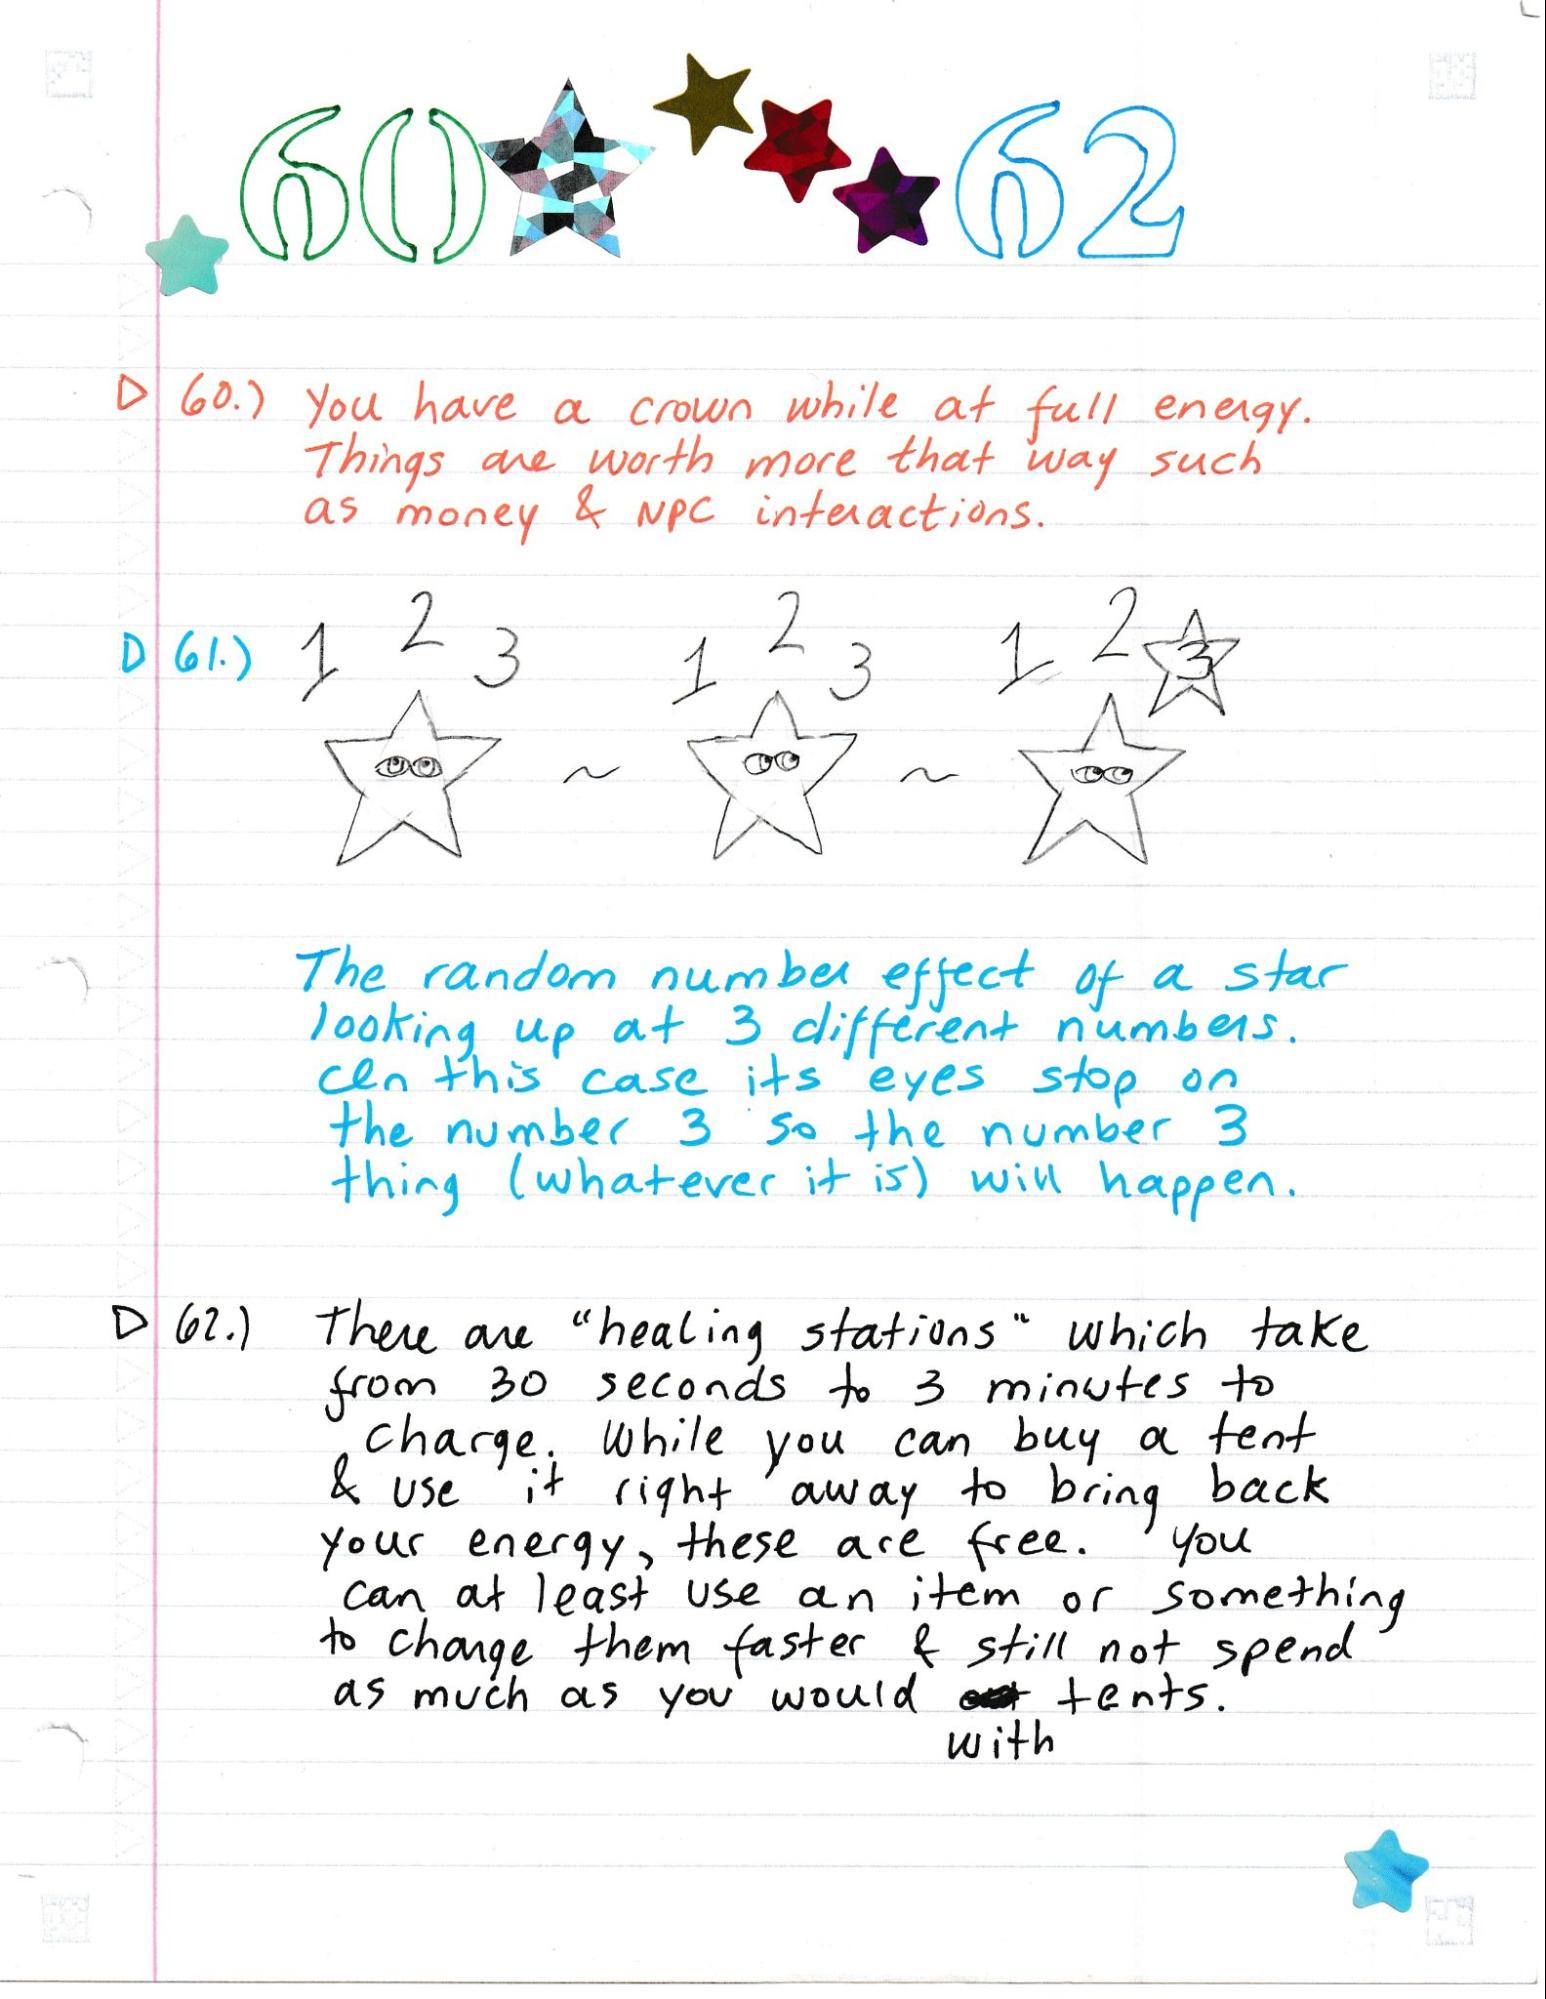 60 62
D 60.) You have a crown while at full energy.
Things are worth more that way such
as money & NPC interactions.
1 2 3 1 2 3 1 2 3
D 61.)
~ ~
The random number effect of a star
looking up at 3 different numbers.
In this case its eyes stop on
the number 3 so the number 3
thing (whatever it is) will happen.
D 62.) There are "healing stations" which take
from 30 seconds to 3 minutes to
charge. While you can buy a tent
& use it right away to bring back
your energy, these are free. You
can at least use an item or something
to charge them faster & still not spend
as much as you would tents.
with